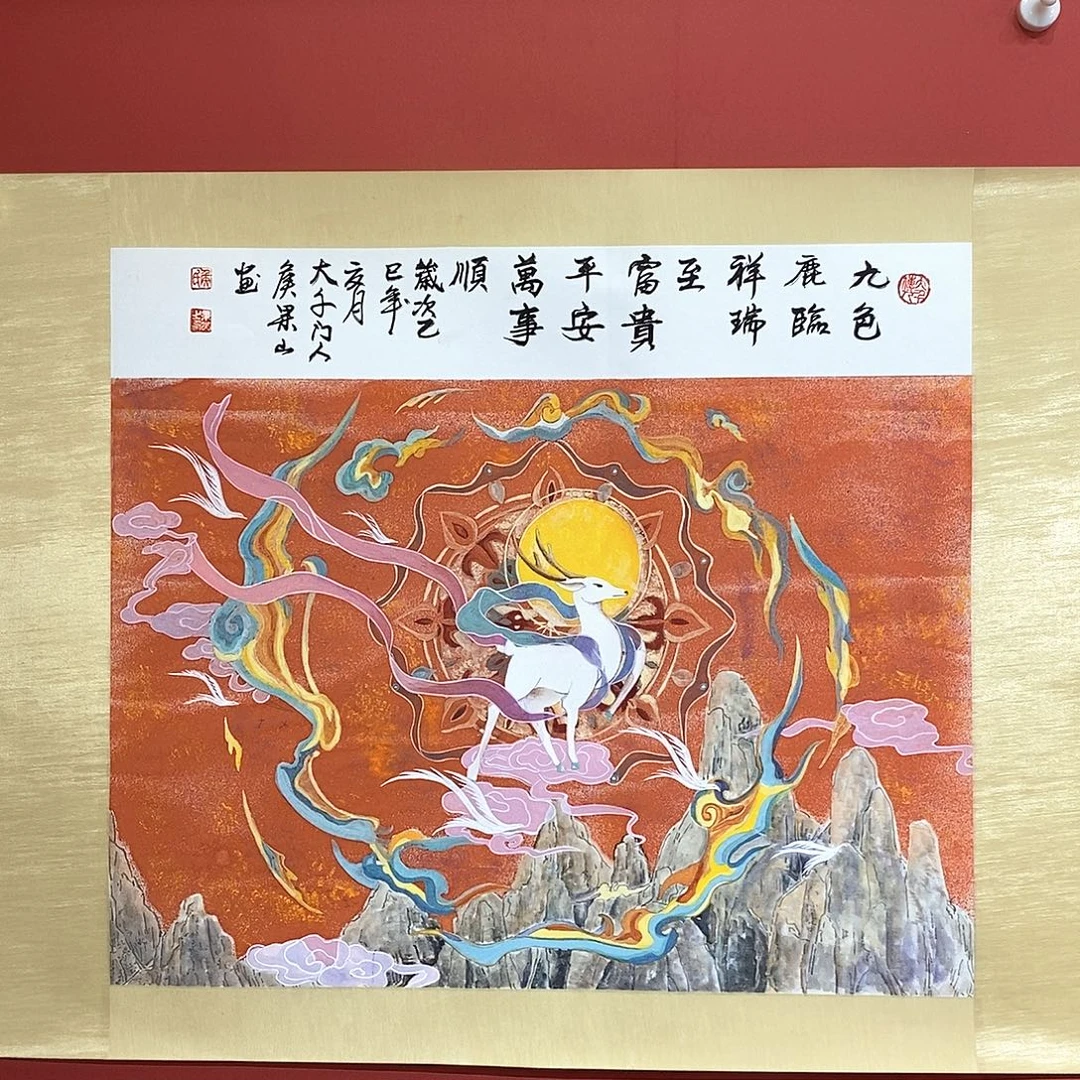 九色
鹿臨
祥瑞
至
富貴
平安
萬事
順
歲次乙
巳年
亥月
大千门人
侯果山
画